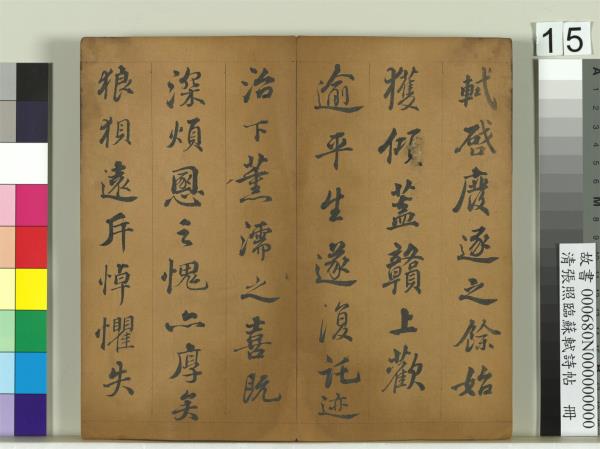 軾啓廢逐之餘始
獲傾蓋贛上歡
逾平生遂復託迹
治下薰濡之喜既
深煩恩之愧亦厚矣
狼狽遠斥悼懼失
15
故書 000680N000000000
清張照臨蘇軾詩帖 冊